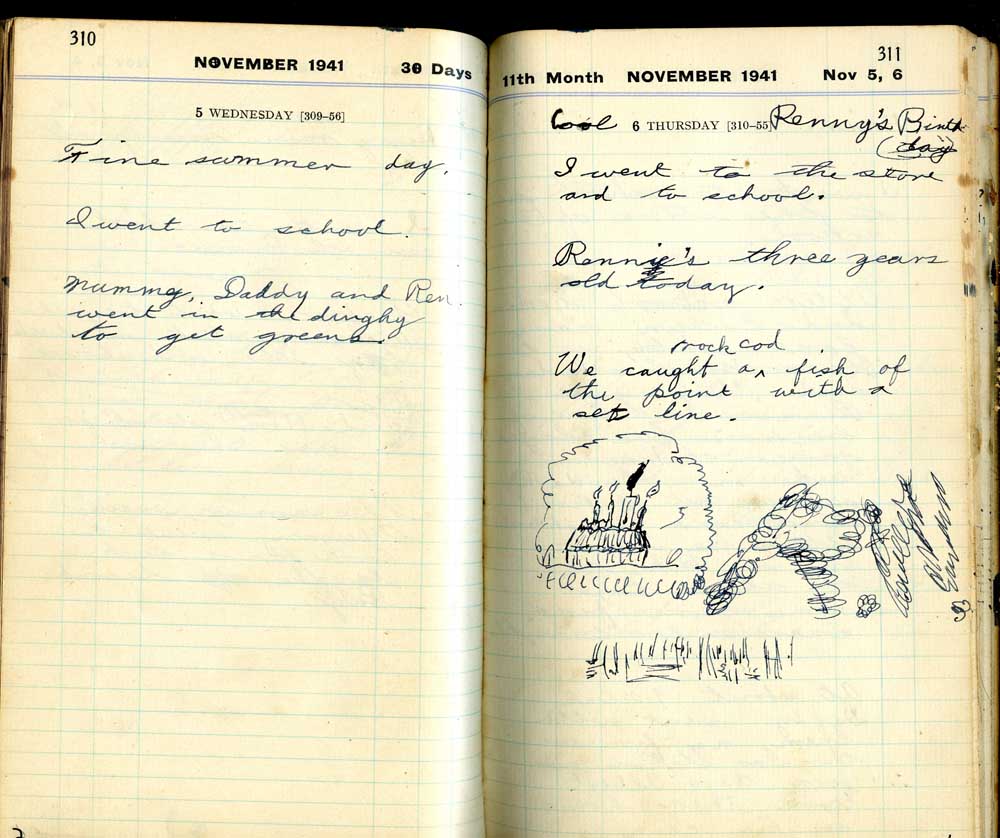 310
NOVEMBER 1941 30 Days
5 WEDNESDAY [309–56]
Fine summer day.
I went to school.
Mummy, Daddy and Ren
went in the dinghy
to get greens.
311
11th Month NOVEMBER 1941 Nov 5, 6
Cool 6 THURSDAY [310–55] Renny's Birth
(day)
I went to the store
and to school.
Renny's three years
old today.
rock cod
We caught a ^ fish of
the point with a
set line.